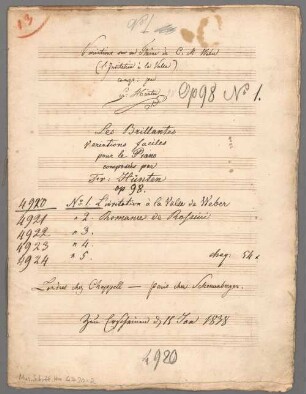 13
No 1
Variations sur un Thème de C. M. Weber
(L'Invitation à la Valse)
comp. par
Op 98 No 1.
Les Brillantes
Variations faciles
pour le Piano
composées par
Fr: Hünten
op 98.
4920 No 1 L'invitation à la Valse de Weber
4921 " 2 Romance de Rossini
4922 " 3
4923 " 4
4924 " 5 54 x
Londres chez Chappell — Paris chez Schonenberger.
Zum 15 Jan 1838
4920